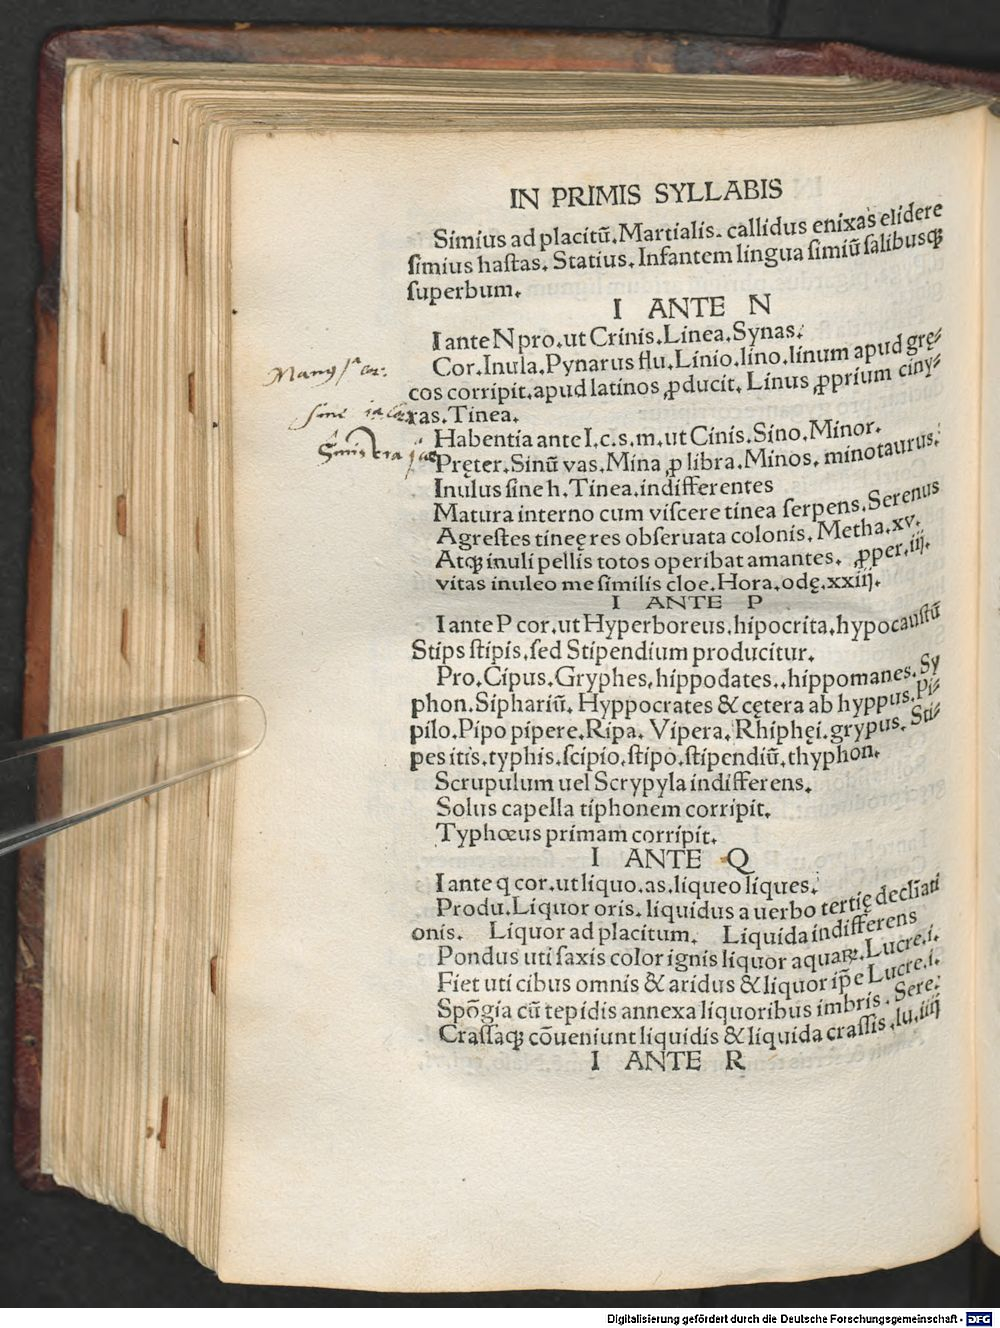 IN PRIMIS SYLLABIS
Simius ad placitū. Martialis. callidus enixas elidere
simius hastas. Statius. Infantem lingua simiū salibusqꝫ
superbum.
I ANTE N
I ante N pro. ut Crinis. Linea. Synas.
Cor. Inula. Pynarus flu. Linio. lino. linum apud grę⸗
cos corripit. apud latinos ꝓducit. Linus ꝓprium ciny⸗
ras. Tinea.
Habentia ante I. c. s. m. ut Cinis. Sino. Minor.
Pręter. Sinū vas. Mina ꝓ libra. Minos. minotaurus.
Inulus sine h. Tinea. indifferentes
Matura interno cum viscere tinea serpens. Serenus
Agrestes tineę res obseruata colonis. Metha. xv.
Atqꝫ inuli pellis totos operibat amantes. ꝓper. iij.
vitas inuleo me similis cloe. Hora. odę. xxiij.
I ANTE P
I ante P cor. ut Hyperboreus. hipocrita. hypocaustū
Stips stipis. sed Stipendium producitur.
Pro. Cipus. Gryphes. hippodates. . hippomanes. Sy
phon. Siphariū. Hyppocrates & cętera ab hyppus. Pi⸗
pilo. Pipo pipere. Ripa. Vipera. Rhiphęi. grypus. Sti⸗
pes itis. typhis. scipio. stipo. stipendiū. thyphon.
Scrupulum uel Scrypyla indifferens.
Solus capella tiphonem corripit.
Typhœus primam corripit.
I ANTE Q
I ante q cor. ut liquo. as. liqueo liques.
Produ. Liquor oris. liquidus a uerbo tertię decliati
onis. Liquor ad placitum. Liquida indifferens
Pondus uti saxis color ignis liquor aquaꝝ. Lucre. i.
Fiet uti cibus omnis & aridus & liquor ip̄e Lucre. i.
Spōgia cū tepidis annexa liquoribus imbris. Sere.
Crassaqꝫ cōueniunt liquidis & liquida crassis. lu. iiij
I ANTE R
Digitalisierung gefördert durch die Deutsche Forschungsgemeinschaft - DFG